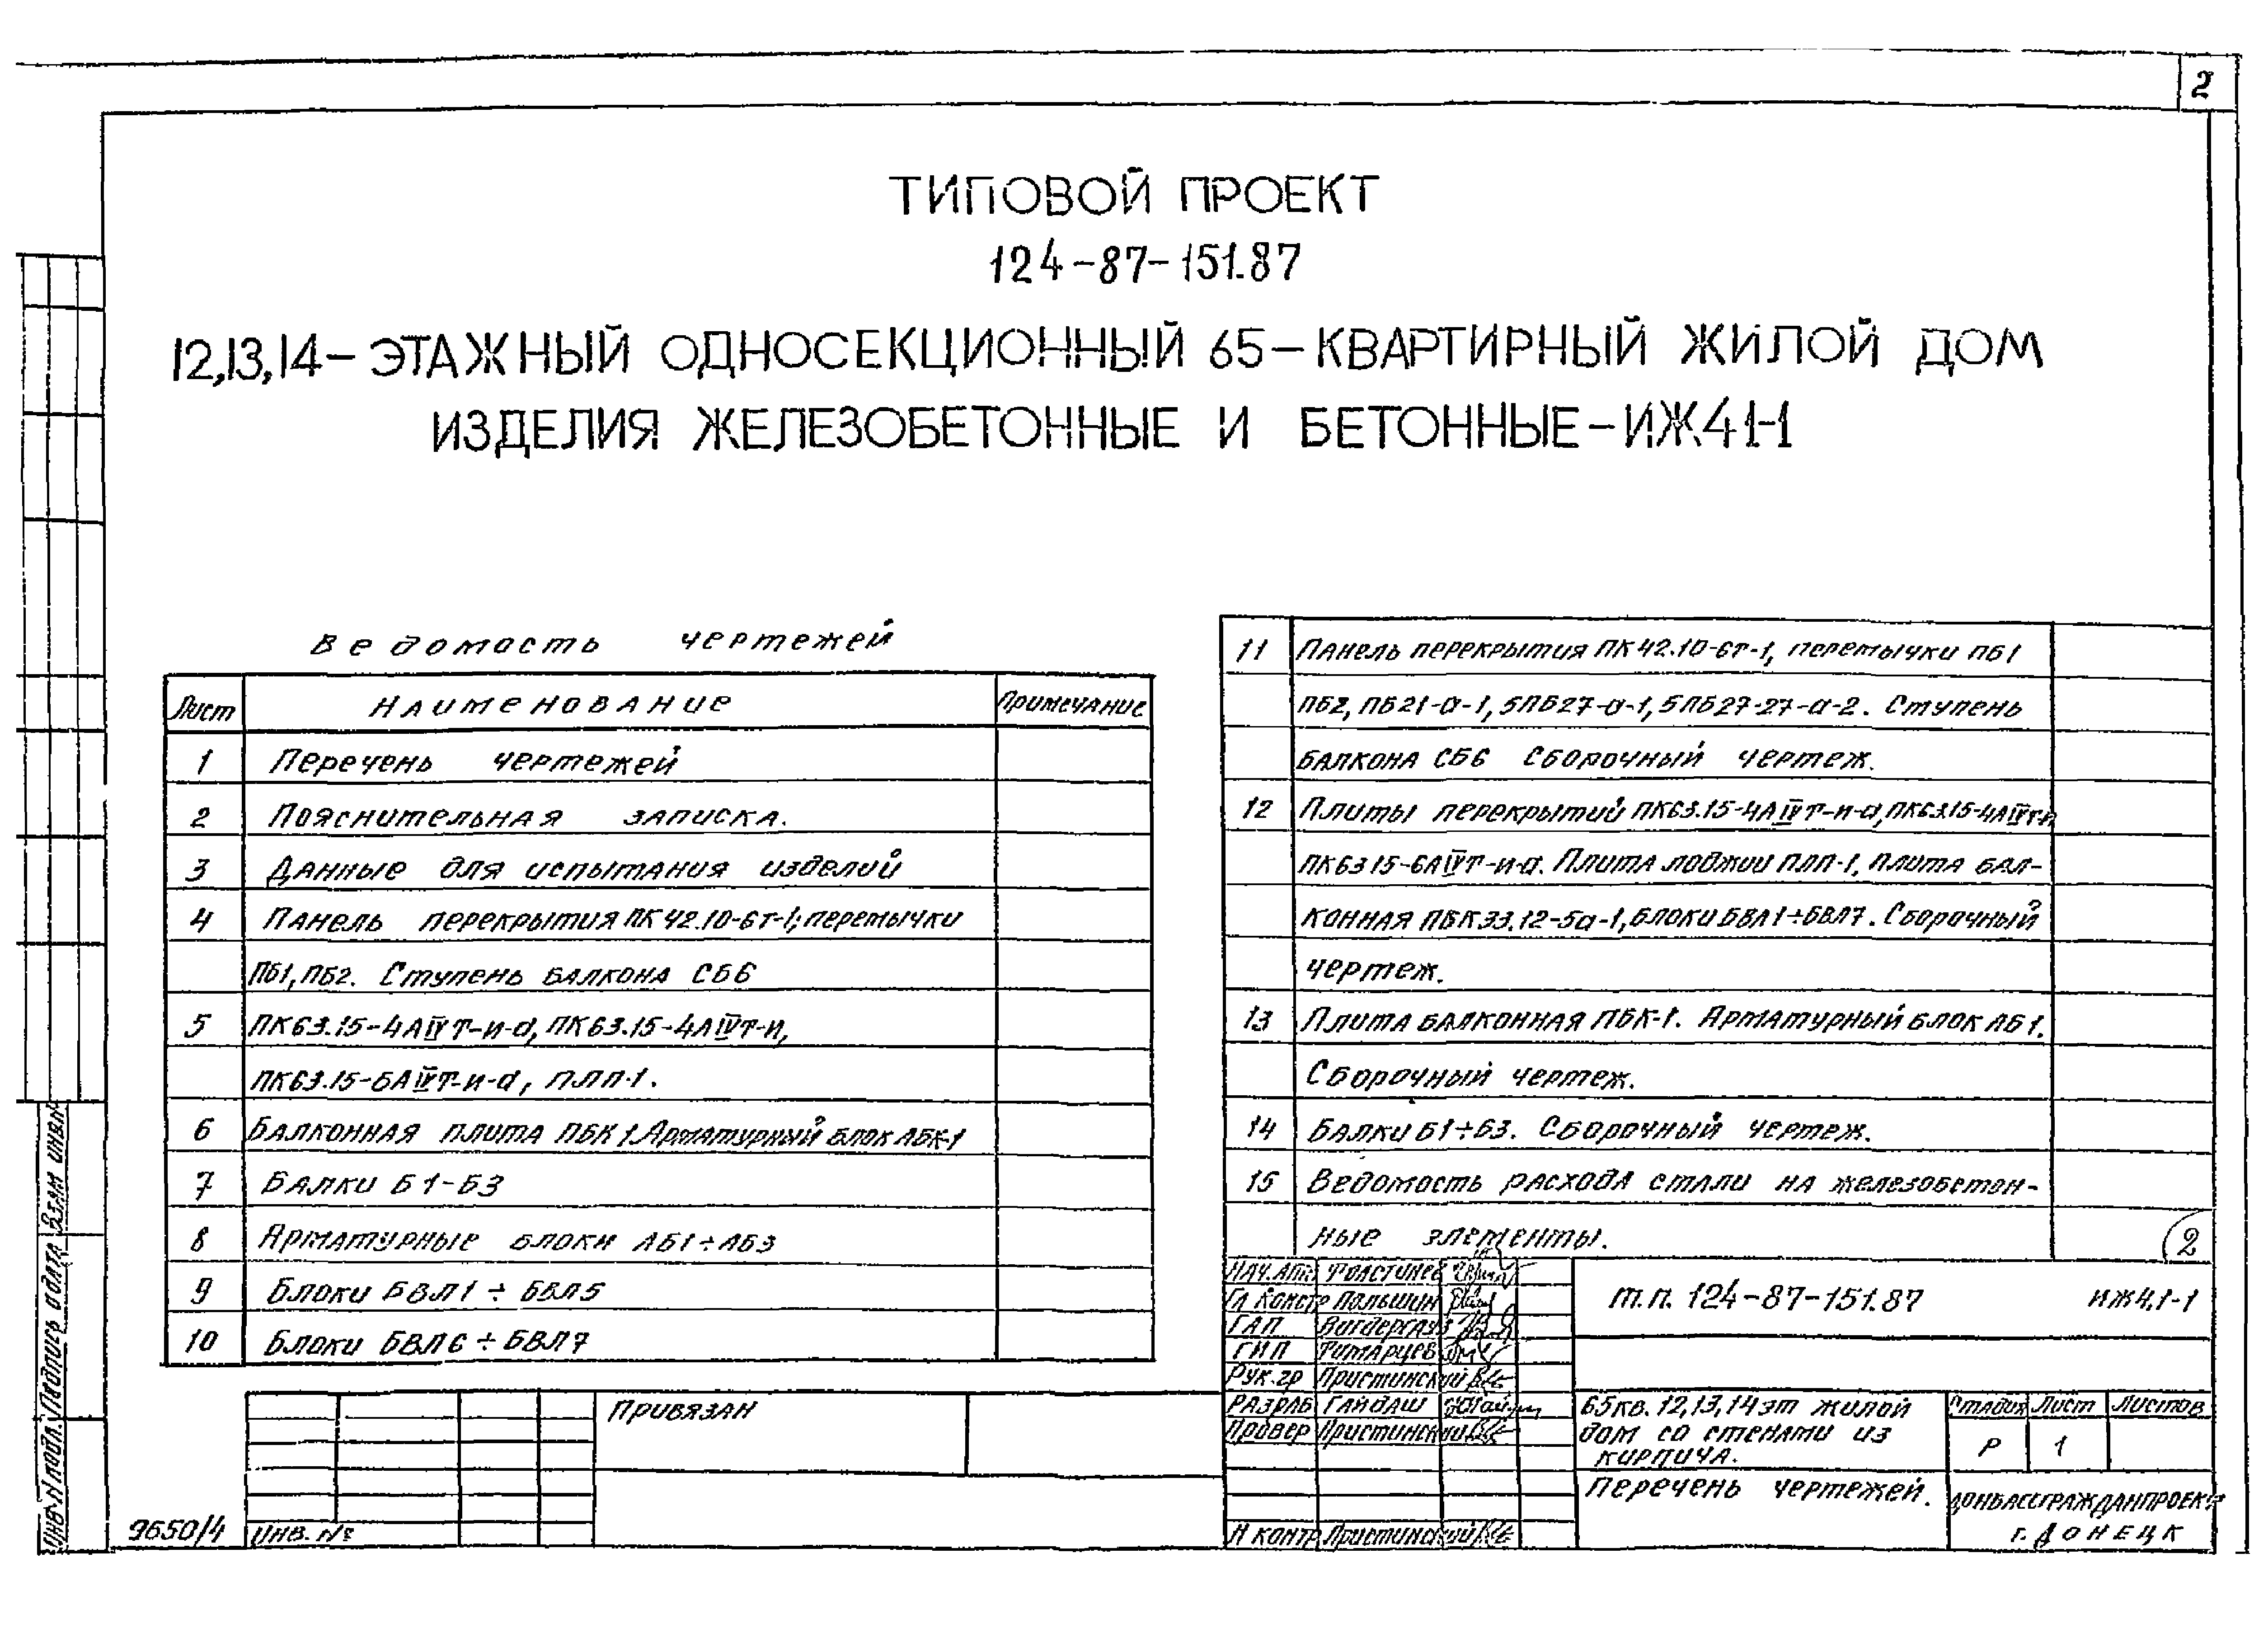 2
ТИПОВОЙ ПРОЕКТ
124-87-151.87
12,13,14-ЭТАЖНЫЙ ОДНОСЕКЦИОННЫЙ 65-КВАРТИРНЫЙ ЖИЛОЙ ДОМ
ИЗДЕЛИЯ ЖЕЛЕЗОБЕТОННЫЕ И БЕТОННЫЕ-ИЖ4.1-1
Ведомость чертежей
Лист Наименование Примечание
1 Перечень чертежей
2 Пояснительная записка.
3 Данные для испытания изделий
4 Панель перекрытия ПК42.10-6т-1; перемычки
ПБ1, ПБ2. Ступень балкона СБ6
5 ПК63.15-4АIVТ-и-а, ПК63.15-4АIVТ-и,
ПК63.15-6АIVТ-и-а, ПЛП-1.
6 Балконная плита ПБК 1. Арматурный блок АБК-1
7 Балки Б1-Б3
8 Арматурные блоки АБ1÷АБ3
9 Блоки БВЛ1 ÷ БВЛ5
10 Блоки БВЛ6 ÷ БВЛ7
11 Панель перекрытия ПК42.10-6т-1, перемычки ПБ1
ПБ2, ПБ21-а-1, 5ПБ27-а-1, 5ПБ27-27-а-2. Ступень
балкона СБ6 Сборочный чертеж.
12 Плиты перекрытий ПК63.15-4АIVТ-и-а, ПК63.15-4АIVТ-и,
ПК63 15-6АIVТ-и-а. Плита лоджии ПЛП-1, плита бал-
конная ПБК33.12-5а-1, блоки БВЛ1÷БВЛ7. Сборочный
чертеж.
13 Плита балконная ПБК-1. Арматурный блок АБ1.
Сборочный чертеж.
14 Балки Б1÷Б3. Сборочный чертеж.
15 Ведомость расхода стали на железобетон-
ные элементы.
2
Нач. АПМ
Гл Констр Польшин
ГАП Вигдергауз
ГИП
Рук. гр Пристинский
Разраб Гайдаш
Провер Пристинский
Н контр Пристинский
т.п. 124-87-151.87 ИЖ4.1-1
65кв. 12,13,14эт жилой
дом со стенами из
кирпича.
Стадия Лист Листов
Р 1
Перечень чертежей.
ДОНБАССГРАЖДАНПРОЕКТ
г. Донецк
Привязан
Инв. №
9650/4
Инв.N подл. Подпись и дата Взам инвN